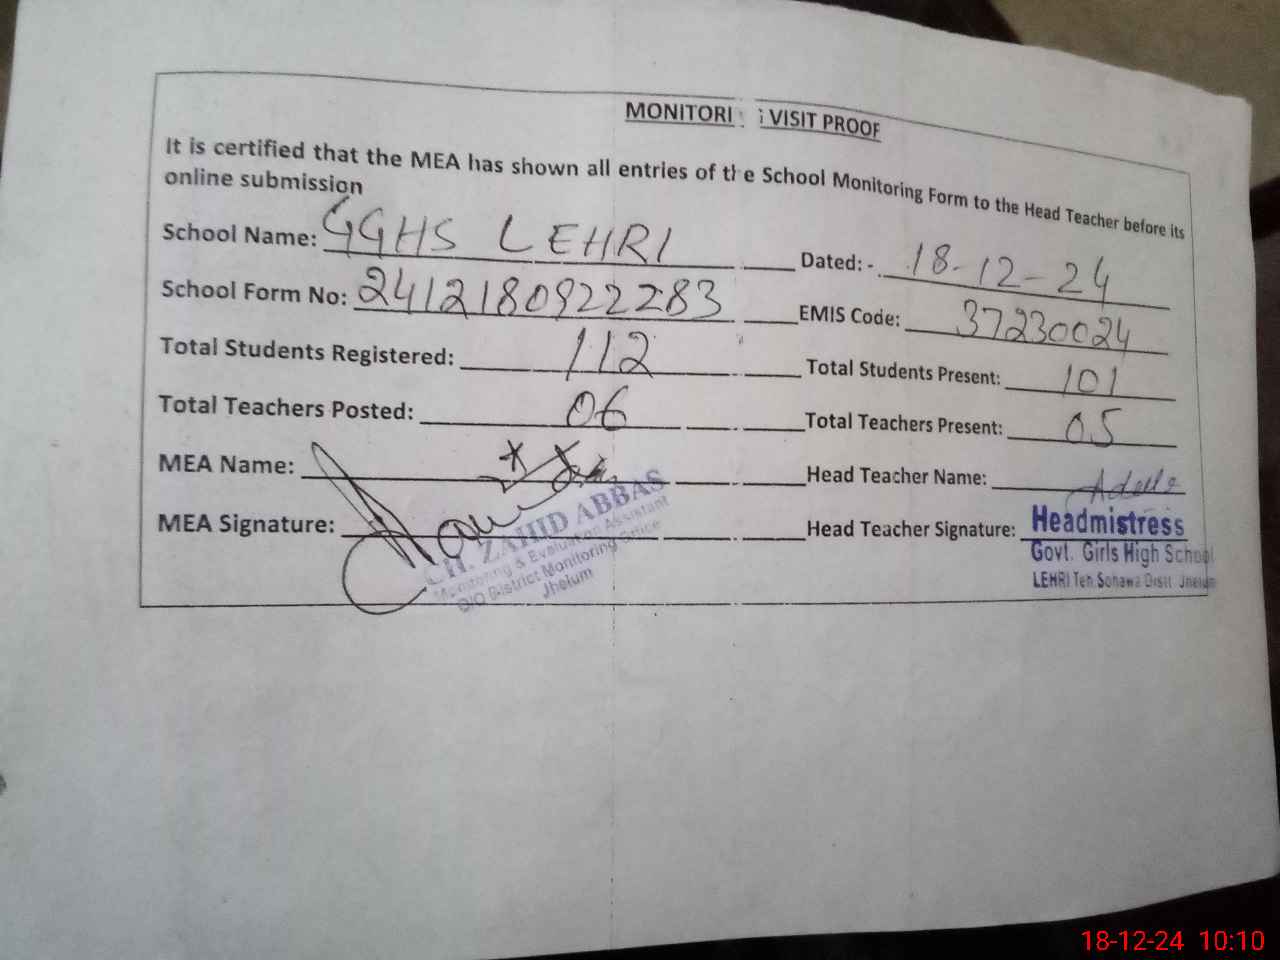 MONITORI G VISIT PROOF
It is certified that the MEA has shown all entries of the School Monitoring Form to the Head Teacher before its
online submission
School Name: GGHS LEHRI Dated: - 18-12-24
School Form No: 2412180922283 EMIS Code: 37230024
Total Students Registered: 112 Total Students Present: 101
Total Teachers Posted: 06 Total Teachers Present: 05
MEA Name: Head Teacher Name:
MEA Signature: Head Teacher Signature:
CH. ZAHID ABBAS
Monitoring & Evaluation Assistant
O/O District Monitoring Office
Jhelum
Headmistress
Govt. Girls High School
LEHRI Teh Sohawa Distt Jhelum
18-12-24 10:10